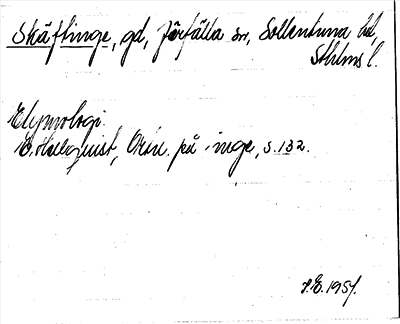 Skäftinge, gd, Järfälla sn, Sollentuna hd,
Sthlms l.
Etymologi.
E. Hellquist, Ortn. på -inge, s. 132.
1951.